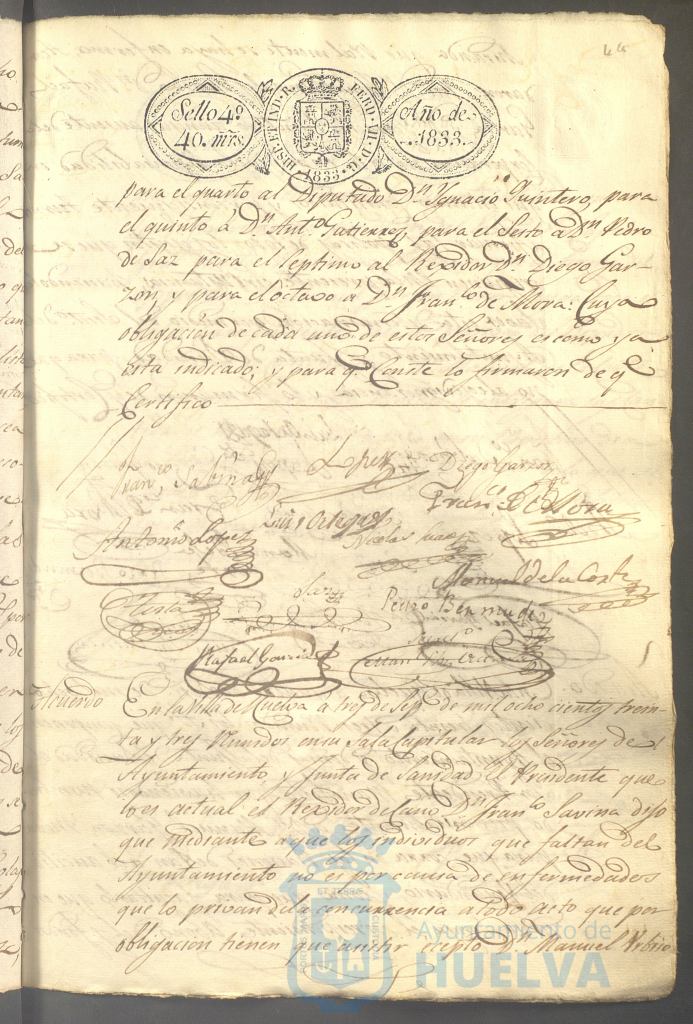 44
Sello 4º
40. mrs.
HISP. ET IND. R. FERD. VII. D. G.
.1833.
Año de
.1833.
para el quarto al Diputado Dn. Ygnacio Quintero, para
el quinto á Dn. Anto. Gutierrez, para el Sesto a Dn. Pedro
de Saz para el septimo al Rexidor Dn. Diego Gar-
zon, y para el octavo á Dn. Franco. de Mora: Cuya
obligacion de cada uno de estos Señores es como ya
esta indicado; y para qe. Conste lo firmaron de qe.
Certifico
Franco. Sabina
Lopez
Diego Garzon
Franco. De Mora
Antonio Lopez
Luis Ortega
Nicolas
Manuel de la Corte
Saz
Pedro Bermudez
Rafael Garcia
Acuerdo
En la Villa de Huelva a tres de Sepe. de mil ocho cientos trein-
ta y tres Reunidos en su Sala Capitular los Señores del
Ayuntamiento y Junta de Sanidad el Presidente que
lo es actual el Rexidor decano Dn. Franco. Savina dijo
que mediante a que los individuos que faltan del
Ayuntamiento no es por causa de enfermedades
que lo privan de la concurrencia a todo acto que por
obligacion tienen que asistir esepto Dn. Manuel
Ayuntamiento de
HUELVA